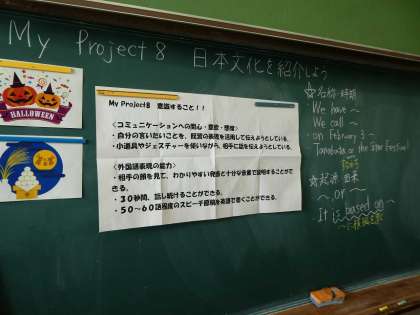 My Project 8 日本文化を紹介しよう
HALLOWEEN
My Project8 意識すること！！
＜コミュニケーションへの関心・意欲・態度＞
・自分の言いたいことを、既習の表現を活用して伝えようとしている。
・小道具やジェスチャーを使いながら、相手に話を伝えようとしている。
＜外国語表現の能力＞
・相手の顔を見て、わかりやすい発音と十分な音量で説明することができる。
・３０秒間、話し続けることができる。
・５０～６０語程度のスピーチ原稿を英語で書くことができる。
☆名称・時期
We have ～
We call ～
on February 3 ～
Tanabata or the Star Festival
☆起源・由来
～, or ～
It is based on ～